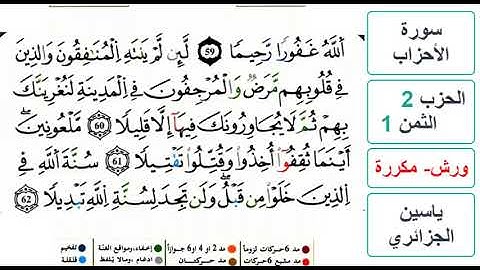 اَللَّهُ غَفُورًا رَّحِيمًا 59 لَّئِن لَّمْ يَنتَهِ اِلْمُنَٰفِقُونَ وَالذِينَ
فِے قُلُوبِهِم مَّرَضٌ وَالْمُرْجِفُونَ فِے اِلْمَدِينَةِ لَنُغْرِيَنَّكَ
بِهِمْ ثُمَّ لَا يُجَاوِرُونَكَ فِيهَآ إِلَّا قَلِيلًا 60 مَّلْعُونِينَ
أَيْنَمَا ثُقِفُوٓاْ أُخِذُواْ وَقُتِّلُواْ تَقْتِيلًا 61 سُنَّةَ اَللَّهِ فِے
اِلذِينَ خَلَوْاْ مِن قَبْلُ وَلَن تَجِدَ لِسُنَّةِ اِللَّهِ تَبْدِيلًا 62
سورة
الأحزاب
الحزب 2
الثمن 1
ورش- مكررة
ياسين
الجزائري
مد 6 حركات لزوما
مد 2 أو 4 أو 6 جوازا
إخفاء، ومواقع الغنة
تفخيم
مد مشبع 6 حركات
مد حركتان
ادغام ، ومالا يلفظ
قلقلة